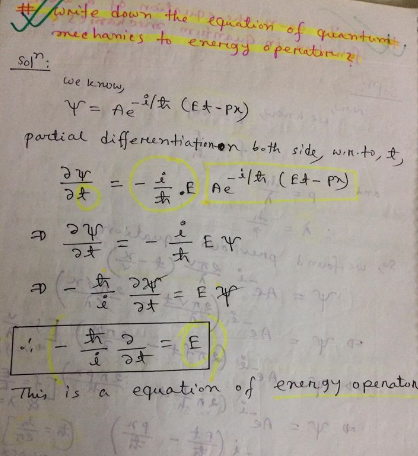 # Write down the equation of quantum
mechanics to energy operator?
Solⁿ:
we know,
Ψ = Ae^{-i/ħ (Et-Px)}
partial differentiation on both side, w.r.to, t,
∂Ψ/∂t = - i/ħ .E Ae^{-i/ħ (Et-Px)}
⇒ ∂Ψ/∂t = - i/ħ E Ψ
⇒ - ħ/i ∂Ψ/∂t = E Ψ
∴ - ħ/i ∂/∂t = E
This is a equation of energy operator